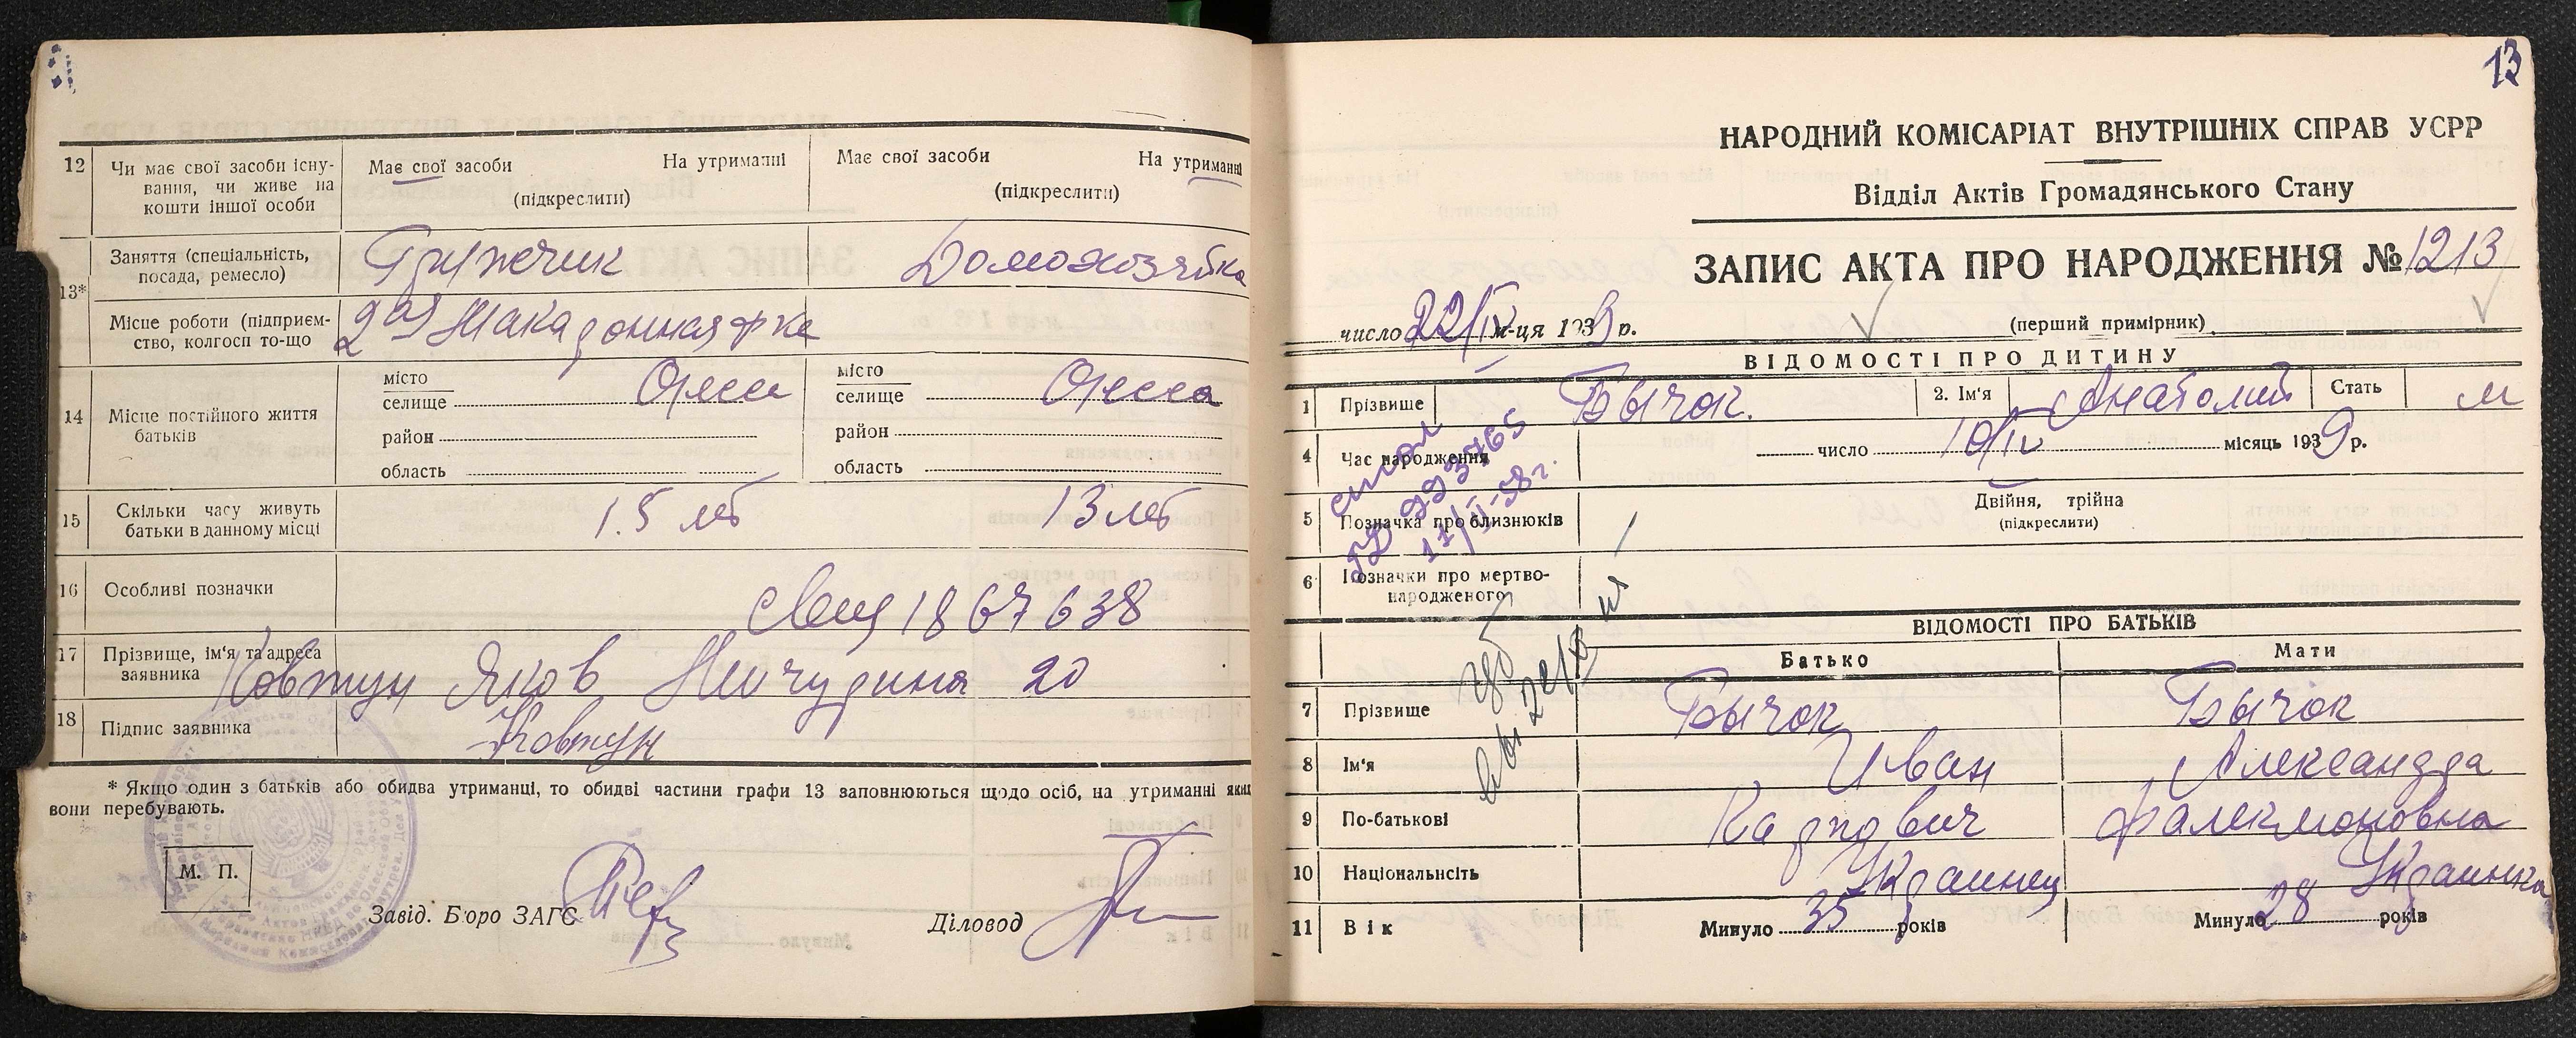 12 Чи має свої засоби існу-
вання, чи живе на
кошти іншої особи
Має свої засоби На утриманні
(підкреслити)
Має свої засоби На утриманні
(підкреслити)
13*
Заняття (спеціальність,
посада, ремесло)
Грузчик
Домохозяйка
Місце роботи (підприєм-
ство, колгосп то-що
2ая Макаронная ф-ка
14 Місце постійного життя
батьків
місто
селище Одесса
район
область
місто
селище Одесса
район
область
15 Скільки часу живуть
батьки в данному місці
1.5 лет
13 лет
16 Особливі позначки
1867638
17 Прізвище, ім'я та адреса
заявника
Ковтун Яков 20
18 Підпис заявника
Ковтун
* Якщо один з батьків або обидва утриманці, то обидві частини графи 13 заповнюються щодо осіб, на утриманні яких
вони перебувають.
М. П.
Завід. Бюро ЗАГС
Діловод
13
НАРОДНИЙ КОМІСАРІАТ ВНУТРІШНІХ СПРАВ УСРР
Відділ Актів Громадянського Стану
ЗАПИС АКТА ПРО НАРОДЖЕННЯ № 1213
число 22/IV м-ця 1939 р.
(перший примірник)
ВІДОМОСТІ ПРО ДИТИНУ
1 Прізвище Бычок. 2. Ім'я Анатолий Стать м
4 Час народження число 10/IV місяць 1939 р.
5 Позначка про близнюків
Двійня, трійна
(підкреслити)
6 Позначки про мертво-
народженого
ВІДОМОСТІ ПРО БАТЬКІВ
Батько Мати
7 Прізвище Бычок Бычок
8 Ім'я Иван Александра
9 По-батькові Карпович Фалекмоновна
10 Національнсіть Украинец Украинка
11 Вік Минуло 35 років Минуло 28 років